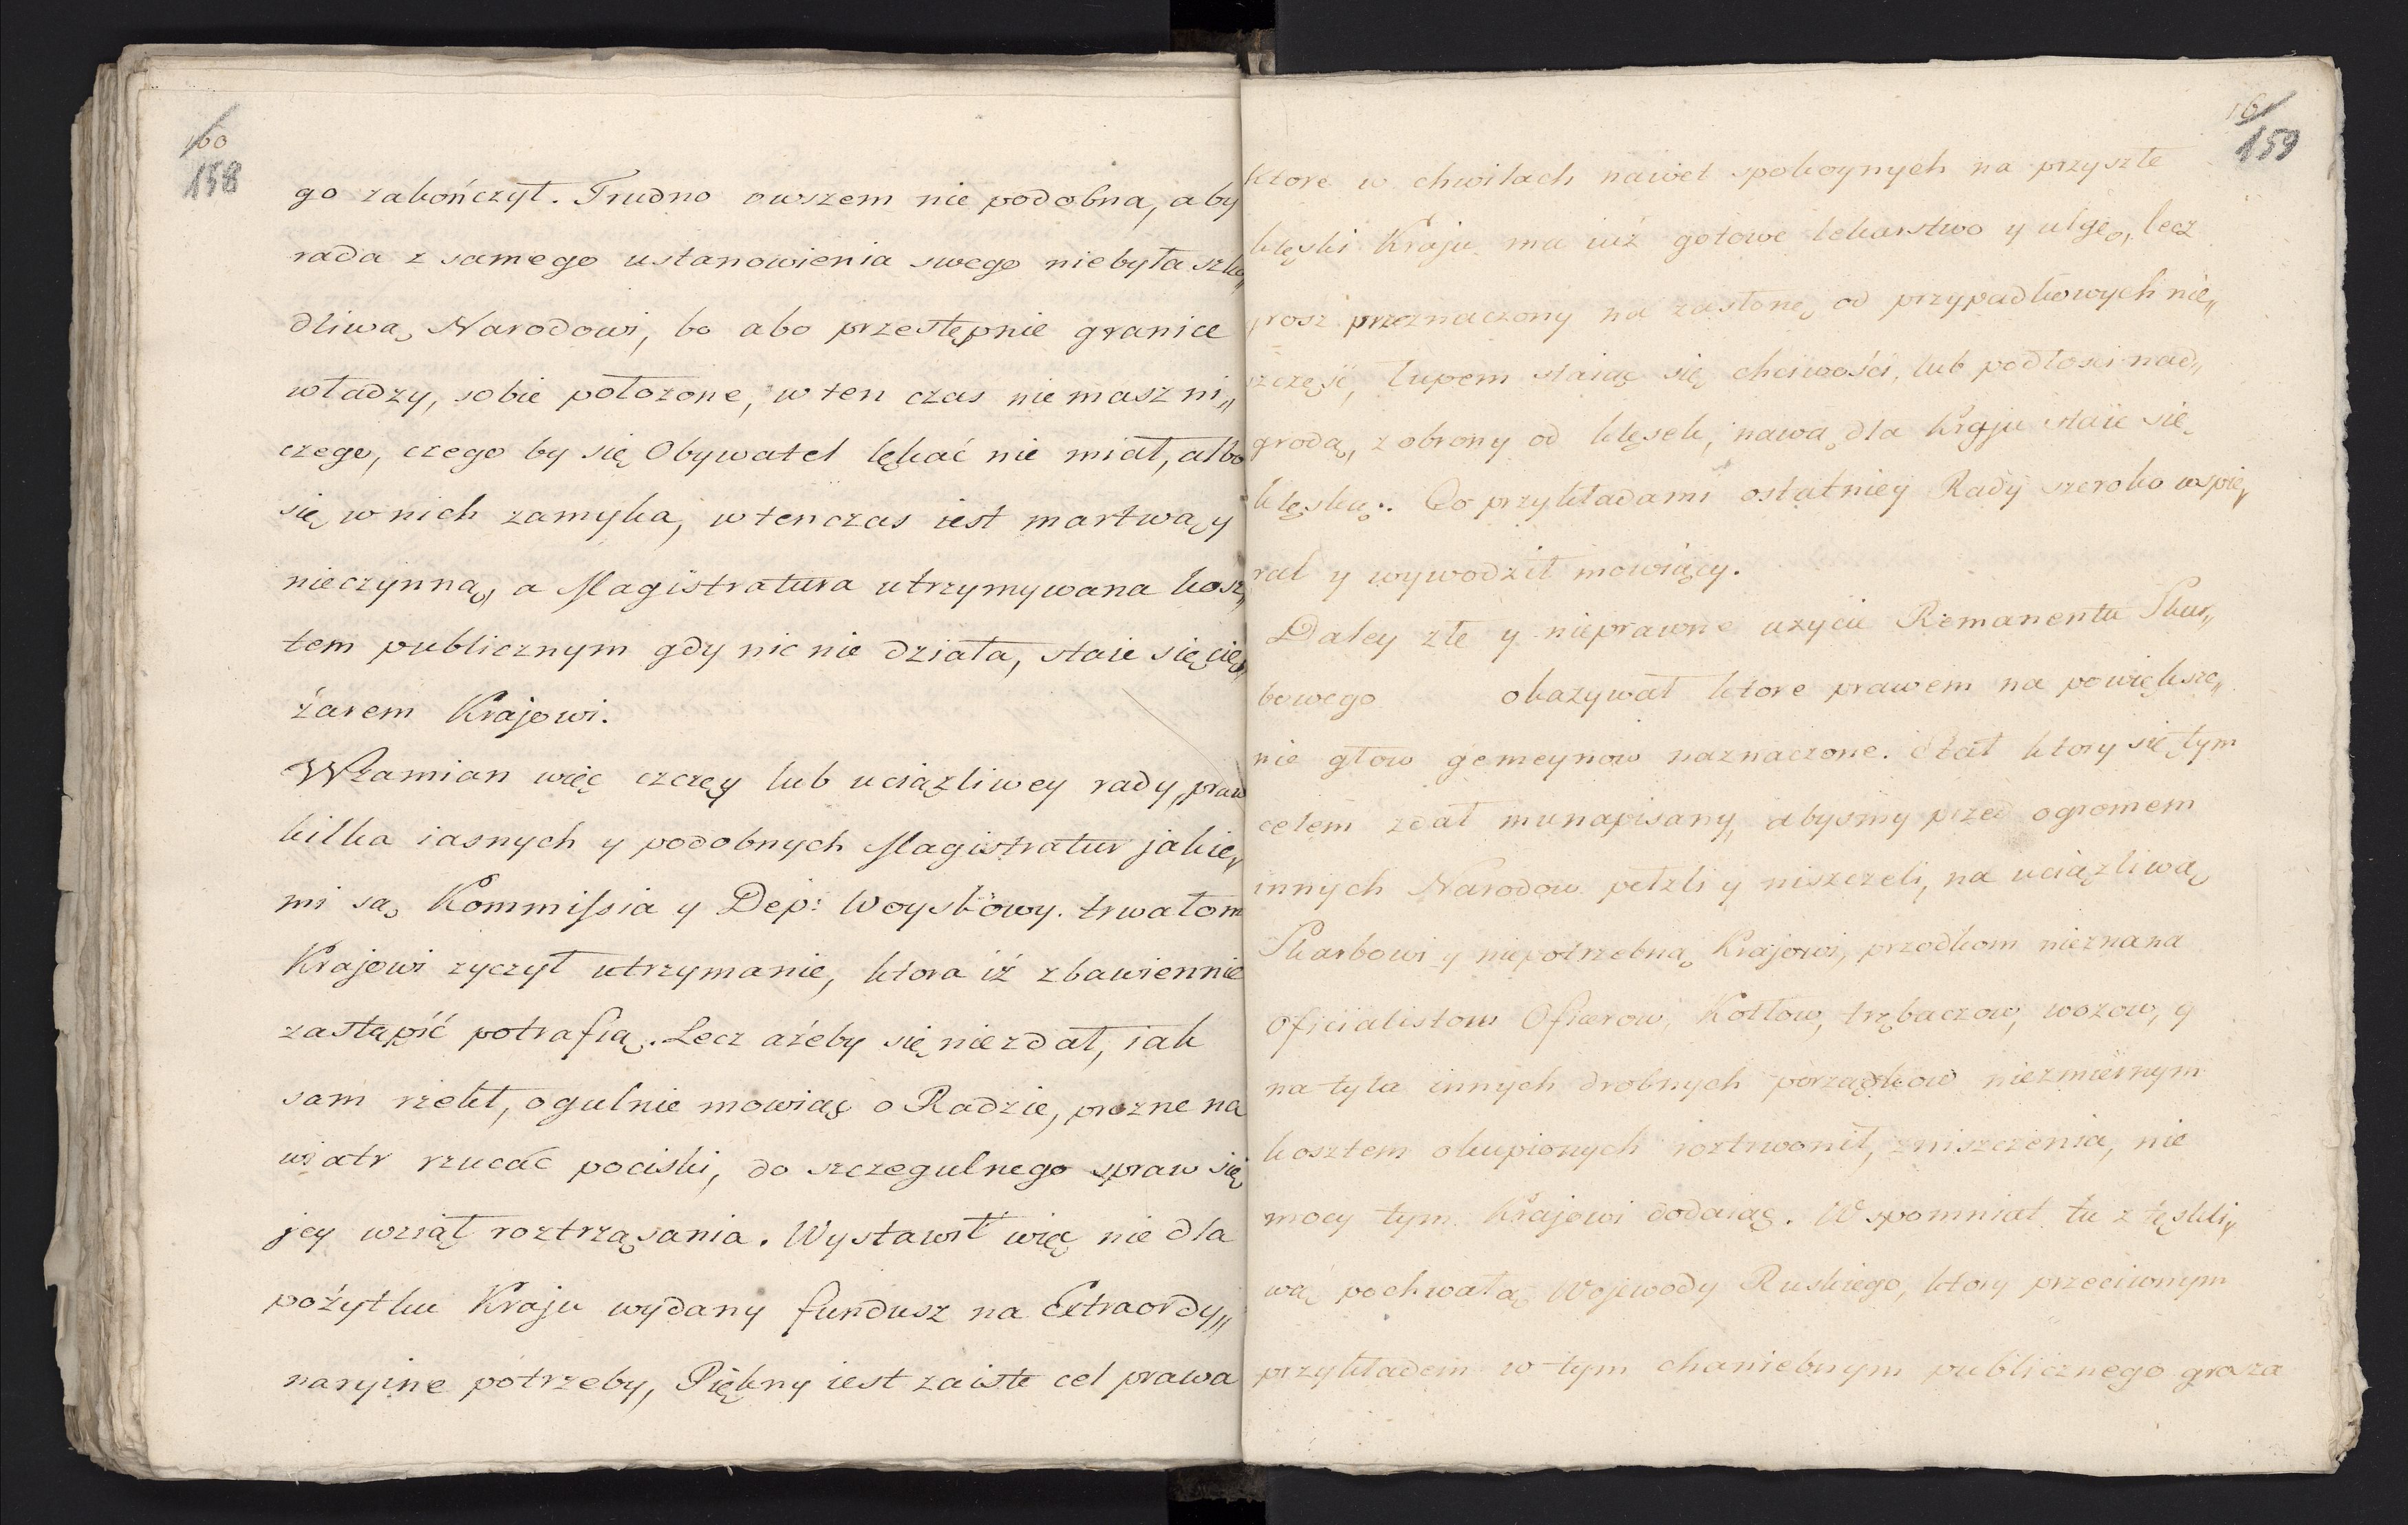 160
158
go zakończył. Trudno owszem nie podobna, aby
rada z samego ustanowienia swego niebyła szko„
dliwą Narodowi, bo abo przestępnie granice
władzy, sobie położone, w ten czas nie masz ni„
czego, czego by się Obywatel lękać nie miał, albo
się w nich zamyka, w tenczas iest martwą y
nieczynną, a Magistratura utrzymywana kosz„
tem publicznym gdy nic nie działa, staie się cię„
żarem Krajowi.
Wzamian więc czczęy lub uciążliwey rady, praw
kilka iasnych y podobnych Magistratur jakie„
mi są Kommissia y Dep: Woyskowy. trwałom
Krajowi zyczył utrzymanie, ktora iż zbawiennie
zastąpić potrafią. Lecz ażeby się niezdał, iak
sam rzekł, ogulnie mowiąc o Radzie, prozne na
wiatr rzucać pociski, do szczegulnego spraw się
jey wziął roztrząsania. Wystawił więc nie dla
pożytku Kraju wydany fundusz na Extraordy„
naryine potrzeby, Piękny iest zaiste cel prawa
161
159
ktore w chwilach nawet spokoynych na przyszłe
klęski Kraju ma iuż gotowe lekarstwo y ulgę, lecz
grosz przeznaczony na zasłonę od przypadkowych nie„
szczęść, łupem staiąc się chciwości, lub podłości nad„
grodą, z obrony od klęsek, nową dla Kraju staie się
klęską. Co przykładami ostatniey Rady szeroko wspie„
rał y wywodził mowiący.
Daley złe y nieprawne uzycie Remanentu Skar„
bowego okazywał ktore prawem na powiększe„
nie głow gemeynow naznaczone. Etat ktory się tym
celem zdał munapisany, abysmy przed ogromem
innych Narodow pełzli y niszczeli, na uciążliwą
Skarbowi y niepotrzebną Krajowi, przodkom nieznana
Oficialistow Oficerow, Kotłow, trębaczow, wozow, y
na tyla innych drobnych porządkow niezmiernym
kosztem okupionych roztrwonił, zniszczenia, nie
mocy tym Krajowi dodaiąc. Wspomniał tu z tęskli„
wą pochwałą Wojewody Ruskiego, ktory przeciwnym
przykładem w tym chaniebnym publicznego grosza